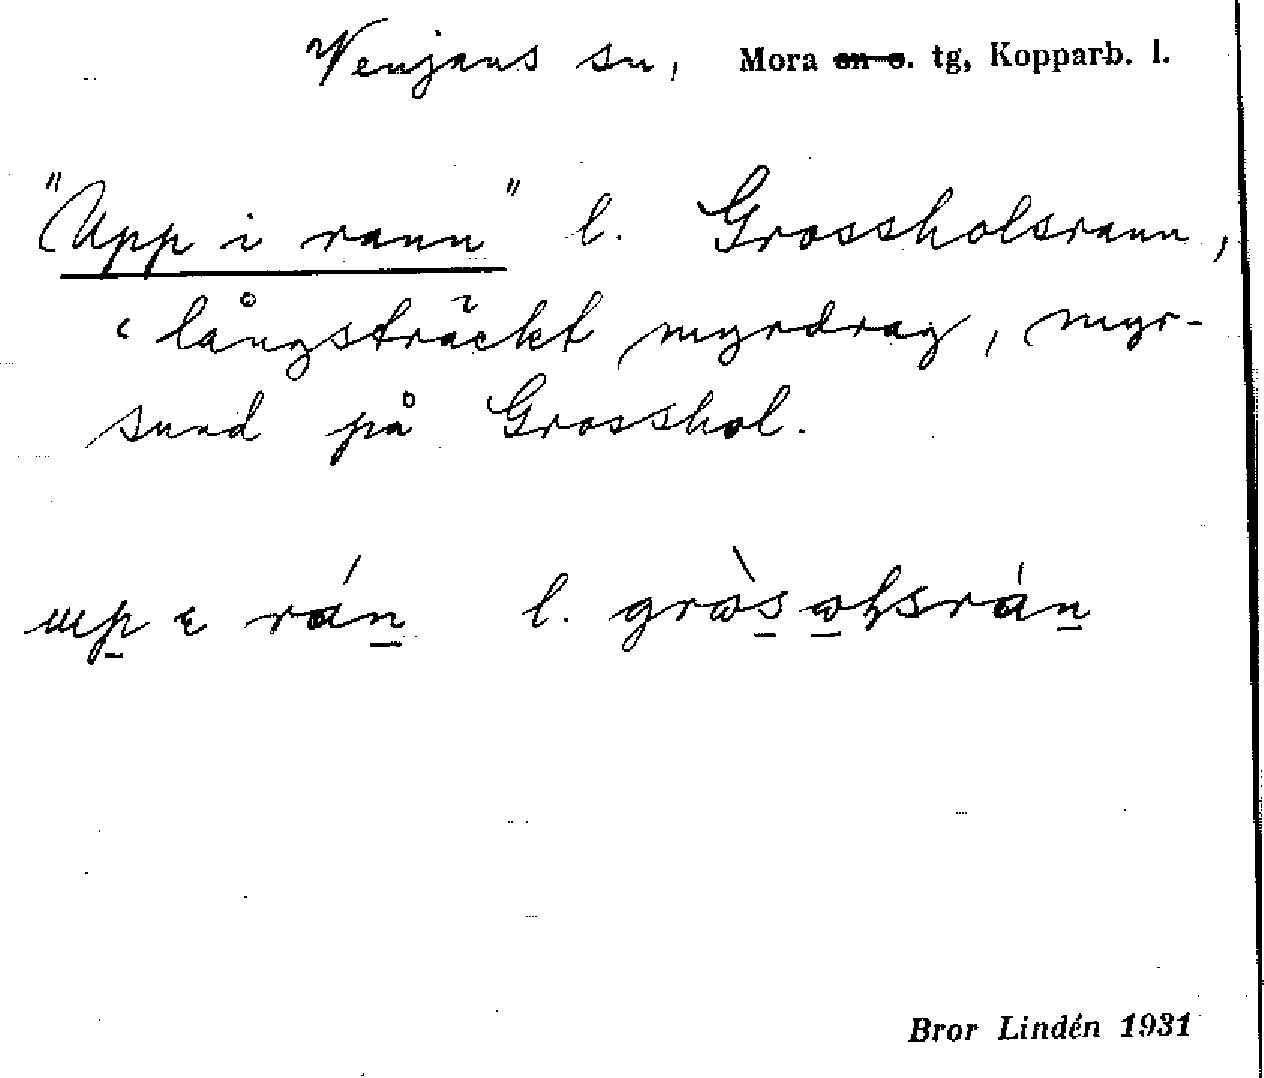 Venjans sn, Mora sn o. tg, Kopparb. l.
"Upp i rann" l. Grossholsrann,
långsträckt myrdrag, myr-
sund på Grosshol.
l.
Bror Lindén 1931